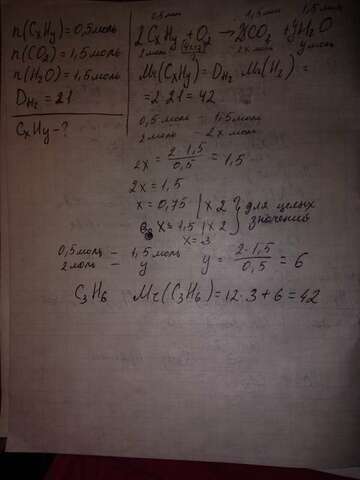 n(CxHy)=0,5моль
n(CO2)=1,5моль
n(H2O)=1,5моль
DH2=21
CxHy-?
0,5моль 1,5моль 1,5моль
2CxHy+O2→2xCO2+yH2O
2моль 2x моль y моль
Mr(CxHy)=DH2·Mr(H2)=
=2·21=42
0,5моль - 1,5моль
2моль - 2x моль
2x=2·1,5/0,5=1,5
2x=1,5
x=0,75 |x2 } для целых
x=1,5 |x2 значений
x=3
0,5моль - 1,5моль y=2·1,5/0,5=6
2моль - y
C3H6 Mr(C3H6)=12·3+6=42